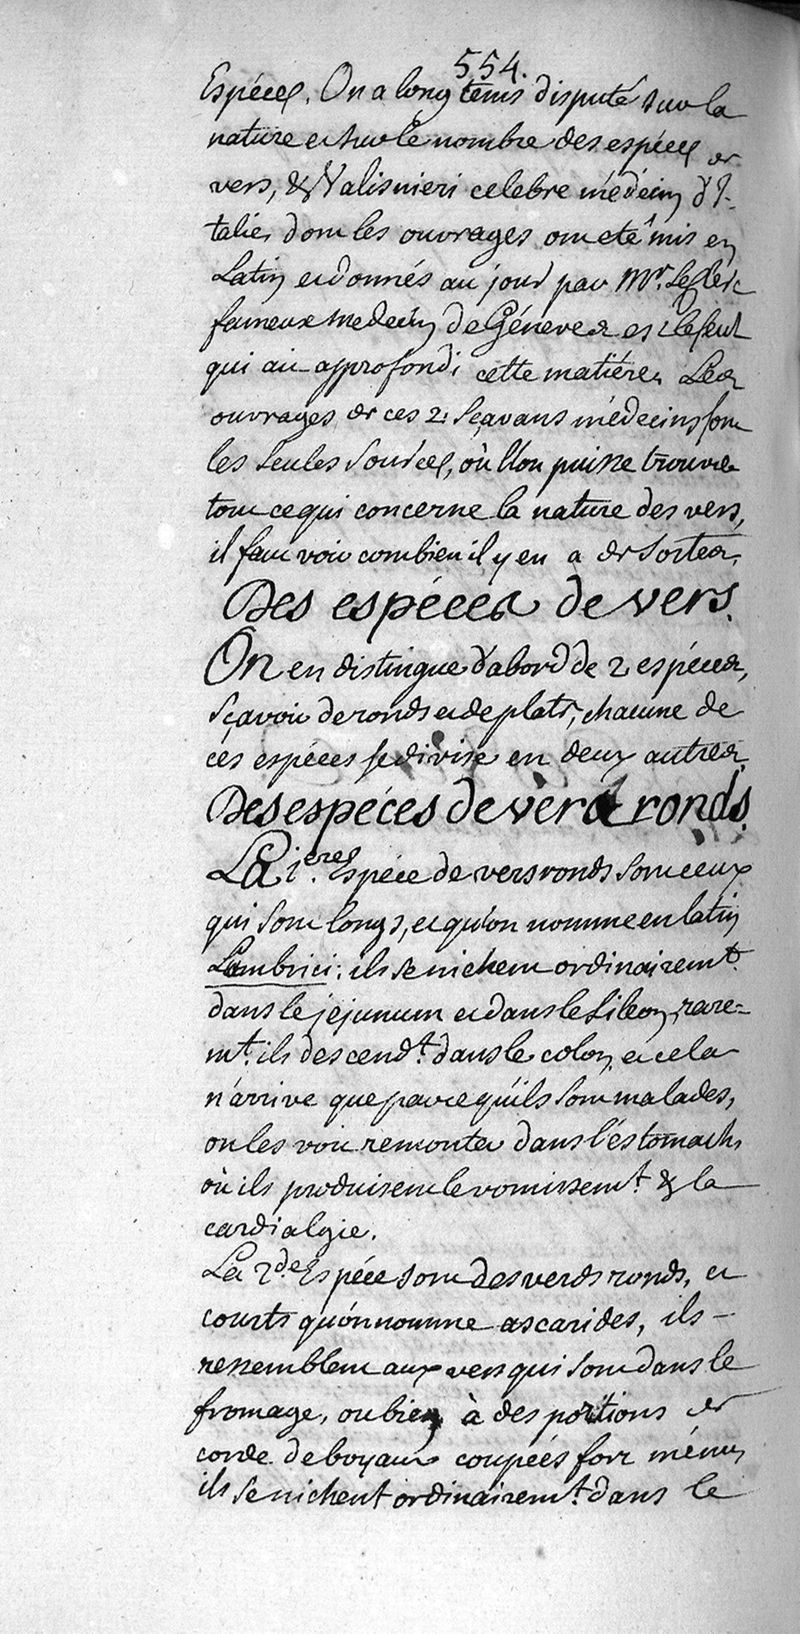 554.
Espéces. On a long tems disputé sur la
nature et sur le nombre des espéces de
vers, & Valisnieri celebre médecin d'I-
talie, dont les ouvrages ont eté mis en
Latin et donnés au jour par Mr. Leclerc
fameux medecin de Géneve est le seul
qui ait approfondi cette matiére. Les
ouvrages de ces 2. sçavans médecins sont
les seules sources, où l'on puisse trouver
tout ce qui concerne la nature des vers,
il faut voir combien il y en a de sortes.
Des espéces de vers.
On en distingue d'abord de 2 espéces,
sçavoir de ronds et de plats, chacune de
ces espéces se divise en deux autres.
Des espéces de vers ronds.
La 1.ere Espéce de vers ronds sont ceux
qui sont longs, et qu'on nomme en latin
Lombrici; ils se nichent ordinairemt.
dans le jejunum et dans le Lileon, rare=
mt. ils descendt. dans le colon, et cela
n'arrive que parce qu'ils sont malades,
on les voit remonter dans l'éstomach,
où ils produisent le vomissemt. & la
cardialgie.
La 2.de Espéce sont des vers ronds, et
courts qu'on nomme ascarides, ils –
ressemblent aux vers qui sont dans le
fromage, ou bien à des portions de
corde de boyaux coupées fort ménu,
ils se nichent ordinairemt. dans le